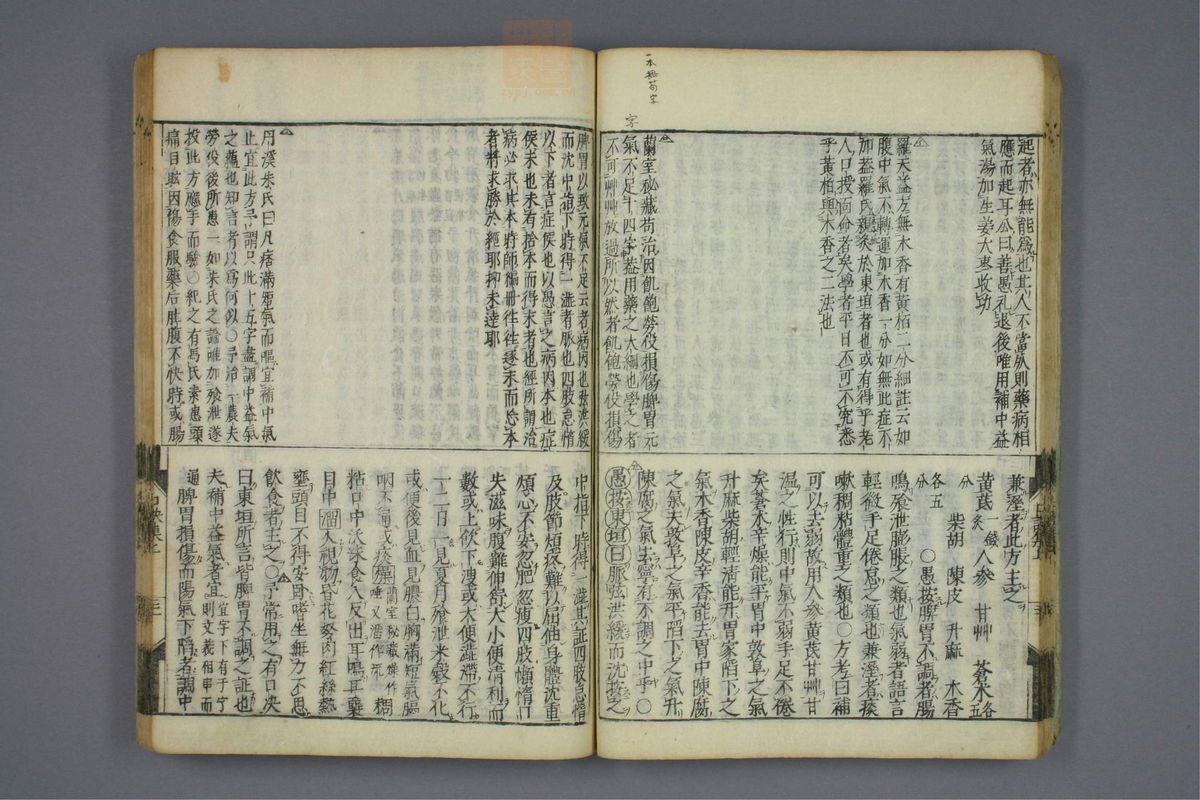 一本無苟字
字
起者亦無能爲也其人不當瓜則藥病相
應而起耳公曰善愚礼退後唯用補中益
氣湯加生姜大棗收功
羅天益方無木香有黃栢二分細註云如
腹中氣不轉運加木香一分如無此症不
加益羅氏親炙於東垣者也或有得乎老
人口授面命者矣學者平日不可不究悉
乎黃栢與木香之二法也
蘭室秘藏苟治因飢飽勞伇損傷脾胃元
氣不足十四字益用藥之大綱也學之者
不可艸艸放過所以然者飢飽勞伇損傷
兼溼者此方主之
黃茋炙一錢人參 甘艸 蒼朮各五
分 柴胡 陳皮 升麻 木香
各五分 〇愚按脾胃不調者腸
鳴飱泄膨脹之類也氣弱者語言
輕微手足倦怠之類也兼溼者痰
嗽稠粘體重之類也〇方考曰補
可以去弱故用人參黃茋甘艸甘
温之性行則中氣不弱手足不倦
矣蒼朮辛燥能平胃中敦阜之氣
升麻柴胡輕淸能升胃家䧟下之
氣木香陳皮辛香能去胃中陳腐
之氣夫敦阜之氣平䧟下之氣升
陳腐之氣去寧有不調之中乎〇
愚按東垣曰脈弦洪緩而沈按之
脾胃以致元氣不足云者病因也故洪緩
而沈中指下時得一濇者脉也四肢怠惰
以下者言症候也以愚言之病因本也症
候末也未有捨本而得末者也經所謂治
病必求其本時師編冊往往逐末而忘本
者將求勝於經耶抑未達耶
丹溪朱氏曰凡痞滿短氣而嘔宜補中氣
止宜此方予謂只此十五字盡調中益氣
之蘊也知言者以爲何似〇予治一農夫
勞伇後所患一如朱氏之證唯加飱泄遂
投此方應手而驗〇紀之有馬氏素患頭
痛目眩因傷食服藥后肚腹不快時或腸
中指下時得一濇其證四肢怠惰
及肢節煩疼難以屈伸身體沈重
煩心不安忽肥忽瘦四肢懶惰口
失滋味腹難伸舒大小便淸利而
數或上飮下溲或大便澁滯不行
一二日一見夏月飱泄米穀不化
或便後見血見膿白胸滿短氣膈
咽不通或痰燥蘭室秘藏燥作唾又濇作形稠
粘口中沃沫食入反出耳鳴耳聾
目中溜火視物昏花努肉紅絲熱
壅頭目不得安卧嗜坐無力不思
飮食者主之〇予常用之有口决
曰東垣所言皆脾胃不調之証也
夫補中益氣者宜宜字下有于字則文義相串而
通脾胃損傷而陽氣下䧟者調中